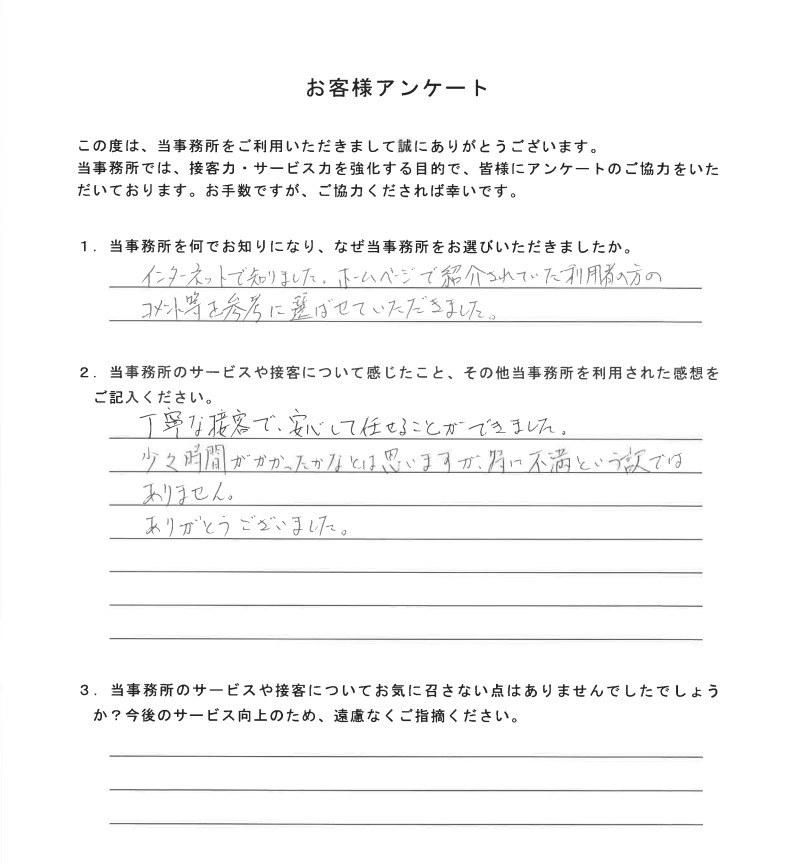 お客様アンケート
この度は、当事務所をご利用いただきまして誠にありがとうございます。
当事務所では、接客力・サービス力を強化する目的で、皆様にアンケートのご協力をいた
だいております。お手数ですが、ご協力くだされば幸いです。
1．当事務所を何でお知りになり、なぜ当事務所をお選びいただきましたか。
インターネットで知りました。ホームページで紹介されていた利用者の方の
コメント等を参考に選ばせていただきました。
2．当事務所のサービスや接客について感じたこと、その他当事務所を利用された感想を
ご記入ください。
丁寧な接客で、安心して任せることができました。
少々時間がかかったかなとは思いますが、特に不満という訳では
ありません。
ありがとうございました。
3．当事務所のサービスや接客についてお気に召さない点はありませんでしたでしょう
か？今後のサービス向上のため、遠慮なくご指摘ください。